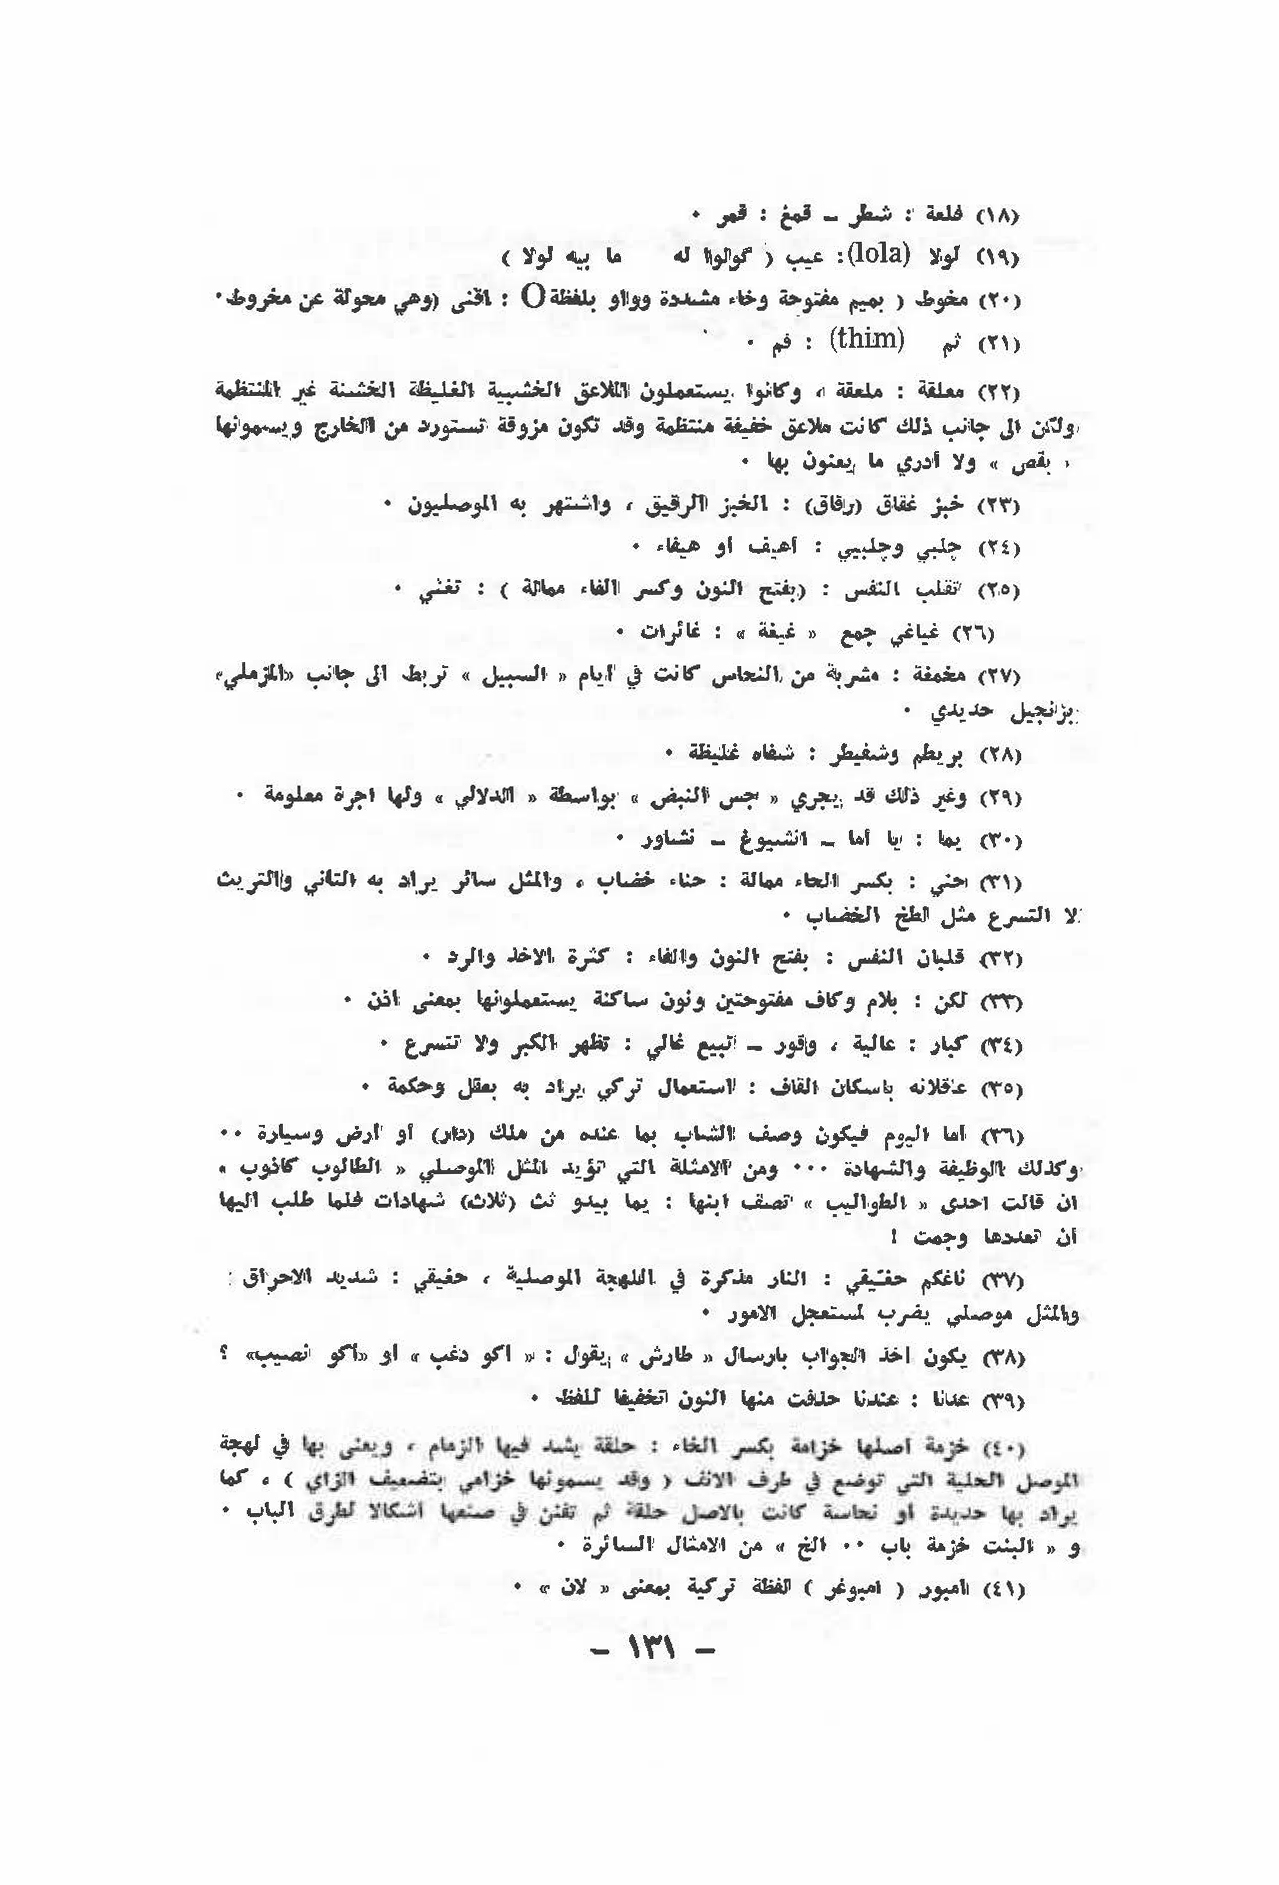 (١٨) فلعة : شطر ـ قمغ : قمر ٠
(١٩) لولا (lola): عيب ( گولوا له ما بيه لولا )
(٢٠) مخوط ( بميم مفتوحة وخاء مشددة وواو بلفظة O : اقنى (وهي محولة عن مخروط٠
(٢١) ثم (thim) : فم ٠
(٢٢) معلقة : ملعقة ، وكانوا يستعملون الملاعق الخشبية الغليظة الخشنة غير المنتظمة
ولكن الى جانب ذلك كانت ملاعق خفيفة منتظمة وقد تكون مزوقة تستورد من الخارج ويسمونها
« بقص » ولا أدري ما يعنون بها ٠
(٢٣) خبز غقاق (رقاق) : الخبز الرقيق ، واشتهر به الموصليون ٠
(٢٤) چلبي وچلبيي : أهيف أو هيفاء ٠
(٢٥) تقلب النفس : (بفتح النون وكسر الفاء ممالة ) : تغثي ٠
(٢٦) غياغي جمع « غيغة » : غائرات ٠
(٢٧) مخمغة : مشربة من النحاس كانت في أيام « السبيل » تربط الى جانب «المزملي»
بزنجيل حديدي ٠
(٢٨) بريطم وشفيطر : شفاه غليظة ٠
(٢٩) وغير ذلك قد يجري « جس النبض » بواسطة « الدلالي » ولها اجرة معلومة ٠
(٣٠) يما : يا أما ـ انشيوغ ـ نشاور ٠
(٣١) حني : بكسر الحاء ممالة : حناء خضاب ، والمثل سائر يراد به التاني والتريث
لا التسرع مثل لطخ الخضاب ٠
(٣٢) قلبان النفس : بفتح النون والفاء : كثرة الاخذ والرد ٠
(٣٣) لكن : بلام وكاف مفتوحتين ونون ساكنة يستعملونها بمعنى اذن ٠
(٣٤) كبار : عالية ، وقور ـ تبيع غالي : تظهر الكبر ولا تتسرع ٠
(٣٥) عاقلانه باسكان القاف : استعمال تركي يراد به بعقل وحكمة ٠
(٣٦) أما اليوم فيكون وصف الشاب بما عنده من ملك (دار) أو أرض وسيارة ٠٠
وكذلك الوظيفة والشهادة ٠٠٠ ومن الامثلة التي تؤيد المثل الموصلي « الطالوب كاذوب »
ان قالت احدى « الطواليب » تصف ابنها : يما بيدو ثث (ثلاث) شهادات فلما طلب اليها
أن تعددها وجمت !
(٣٧) ناغكم حغيقي : النار مذكرة في اللهجة الموصلية ، حغيقي : شديد الاحراق :
والمثل موصلي يضرب لمستعجل الامور ٠
(٣٨) يكون اخذ الجواب بارسال « طارش » يقول : « اكو دغب » او «أكو نصيب» ؟
(٣٩) عدنا : عندنا حذفت منها النون تخفيفا للفظ ٠
(٤٠) خزمة أصلها خزامة بكسر الخاء : حلقة يشد فيها الزمام ، ويعنى بها في لهجة
الموصل الحلية التي توضع في طرف الانف ( وقد يسمونها خزامي بتضعيف الزاي ) ، كما
يراد بها حديدة أو نحاسة كانت بالاصل حلقة ثم تفنن في صنعها اشكالا لطرق الباب ٠
و « البنت خزمة باب ٠٠ الخ » من الامثال السائرة ٠
(٤١) امبور ( امبوغر ) لفظة تركية بمعنى « لان » ٠
– ١٣١ –